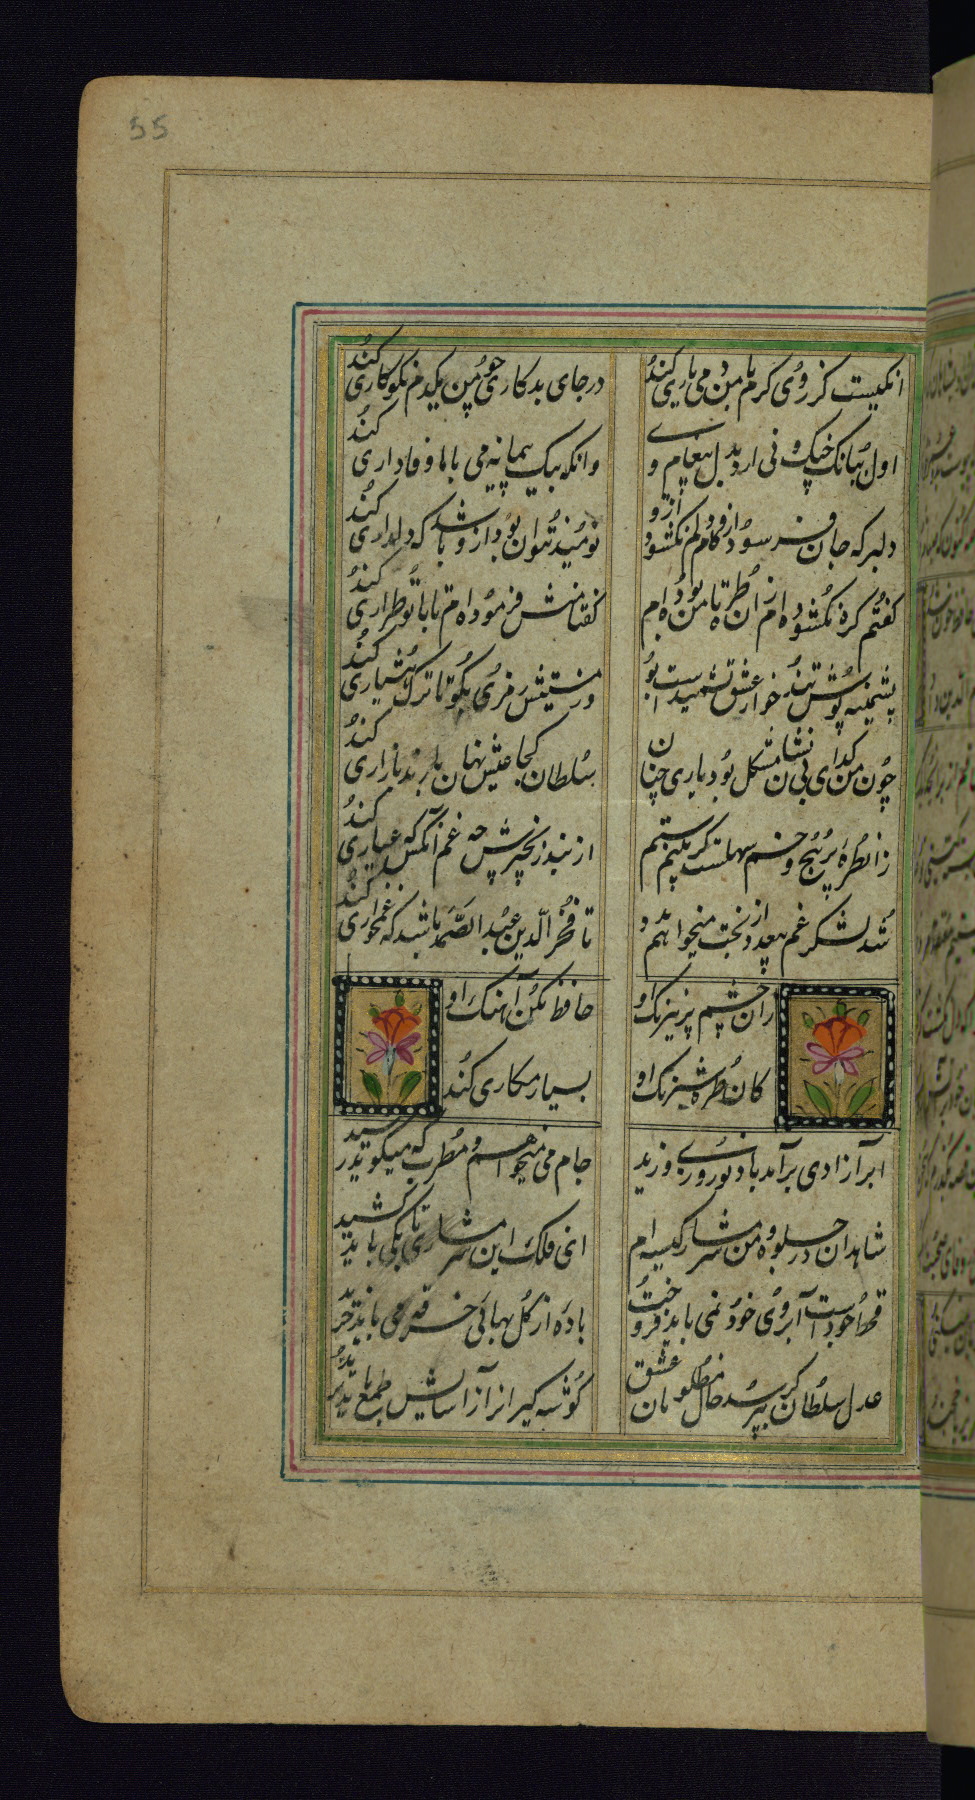 55
انکیست کز روی کرم با من و می یاری کند
در جای بدکاری چو من یکدم نکوکاری کند
اول ببانک چنک و نی ارد بدل پیغام وی
وانکه بیک پیمانه می با ما وفاداری کند
دلبر که جان فرسود ازو کام دلم نکشود ازو
نومید نتوان بود ازو باشد که دلداری کند
کفتم کره نکشوده ام زان طره تا من بوده ام
کفتا منش فرموده ام تا با تو طراری کند
پشمینه پوش تندخو از عشق نشمیدست بو
از مستیش رمزی بکو تا ترک هشیاری کند
چون من کدای بی نشان مشکل بود یاری چنان
سلطان کجا عیش نهان با رند بازاری کند
زان طره پر پیچ و خم سهلست کر بینم ستم
از بند و زنجیرش چه غم آنکس که عیاری کند
شد لشکر غم بیعدد از بخت میخواهم مدد
تا فخر الدین عبد الصمد باشد که غمخواری کند
زان چشم پرنیرنک او
حافظ مکن آهنک او
کان طره شبرنک او
بسیار مکاری کند
ابر آزادی برآمد باد نوروزی وزید
جام می میخواهم و مطرب که میکوید رسید
شاهدان در جلوه و من شرمسار کیسه ام
ای فلک این شرمساری تا بکی باید کشید
قحط جودست آبروی خود نمی باید فروخت
باده از کل بهای خرقه می باید خرید
عدل سلطان کر نپرسد حال مظلومان عشق
کوشه کیرانرا ز آسایش طمع باید برید